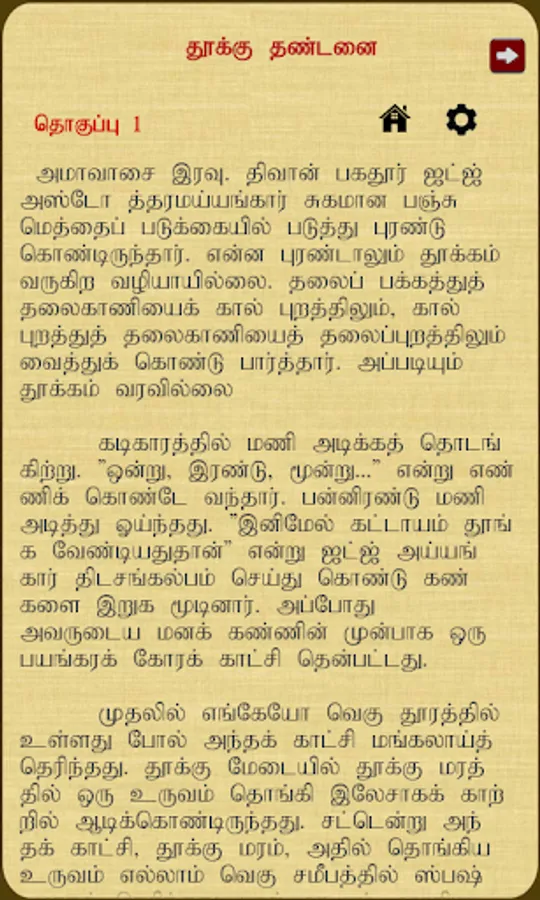 தூக்கு தண்டனை
தொகுப்பு 1
அமாவாசை இரவு. திவான் பகதூர் ஜட்ஜ்
அஸ்டோ த்தரமய்யங்கார் சுகமான பஞ்சு
மெத்தைப் படுக்கையில் படுத்து புரண்டு
கொண்டிருந்தார். என்ன புரண்டாலும் தூக்கம்
வருகிற வழியாயில்லை. தலைப் பக்கத்துத்
தலைகாணியைக் கால் புறத்திலும், கால்
புறத்துத் தலைகாணியைத் தலைப்புறத்திலும்
வைத்துக் கொண்டு பார்த்தார். அப்படியும்
தூக்கம் வரவில்லை
கடிகாரத்தில் மணி அடிக்கத் தொடங்
கிற்று. "ஒன்று, இரண்டு, மூன்று..." என்று எண்
ணிக் கொண்டே வந்தார். பன்னிரண்டு மணி
அடித்து ஓய்ந்தது. "இனிமேல் கட்டாயம் தூங்
க வேண்டியதுதான்" என்று ஜட்ஜ் அய்யங்
கார் திடசங்கல்பம் செய்து கொண்டு கண்
களை இறுக மூடினார். அப்போது
அவருடைய மனக் கண்ணின் முன்பாக ஒரு
பயங்கரக் கோரக் காட்சி தென்பட்டது.
முதலில் எங்கேயோ வெகு தூரத்தில்
உள்ளது போல் அந்தக் காட்சி மங்கலாய்த்
தெரிந்தது. தூக்கு மேடையில் தூக்கு மரத்
தில் ஒரு உருவம் தொங்கி இலேசாகக் காற்
றில் ஆடிக்கொண்டிருந்தது. சட்டென்று அந்
தக் காட்சி, தூக்கு மரம், அதில் தொங்கிய
உருவம் எல்லாம் வெகு சமீபத்தில் ஸ்பஷ்